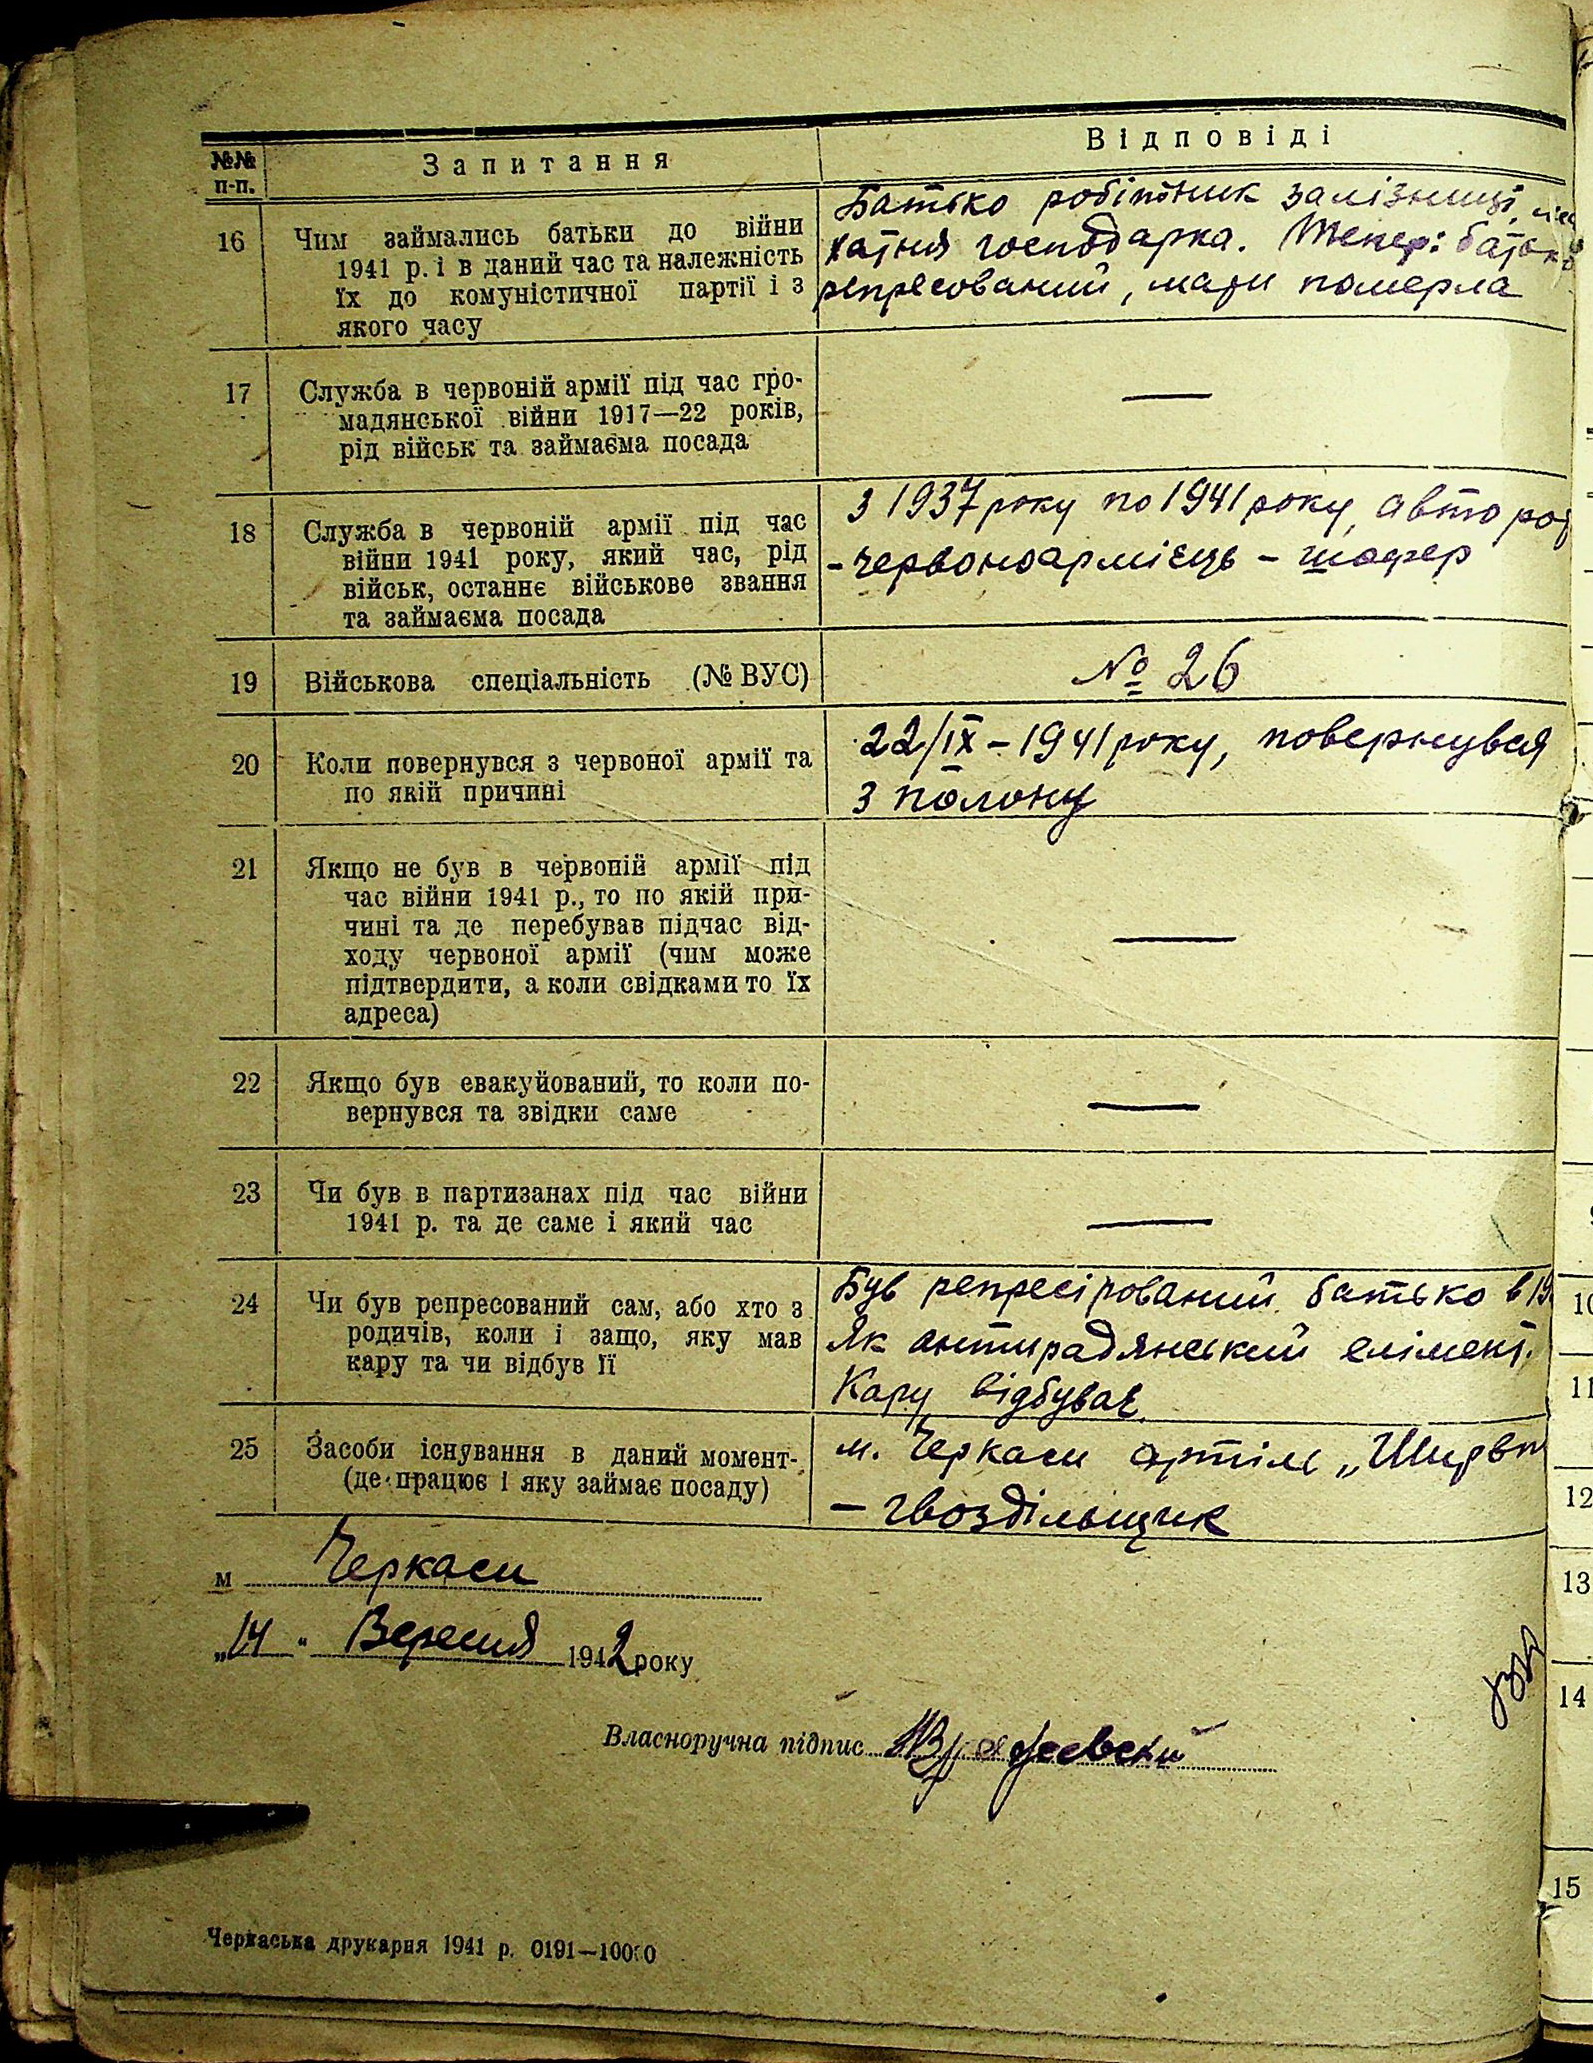 №№ п-п. Запитання Відповіді
16 Чим займались батьки до війни
1941 р. і в даний час та належність
їх до комуністичної партії і з
якого часу
Батько робітник залізниці,
хатня господарка. Тепер: батько
репресований, мати померла
17 Служба в червоній армії під час гро-
мадянської війни 1917—22 років,
рід військ та займаєма посада
—
18 Служба в червоній армії під час
війни 1941 року, який час, рід
військ, останнє військове звання
та займаєма посада
З 1937 року по 1941 року, авто
- червоноармієць - шофер
19 Військова спеціальність (№ ВУС)
№ 26
20 Коли повернувся з червоної армії та
по якій причині
22/IX - 1941 року, повернувся
з полону
21 Якщо не був в червоній армії під
час війни 1941 р., то по якій при-
чині та де перебував підчас від-
ходу червоної армії (чим може
підтвердити, а коли свідками то їх
адреса)
—
22 Якщо був евакуйований, то коли по-
вернувся та звідки саме
—
23 Чи був в партизанах під час війни
1941 р. та де саме і який час
—
24 Чи був репресований сам, або хто з
родичів, коли і защо, яку мав
кару та чи відбув її
Був репресірований батько в 19
Як антирадянський елімент.
Кару відбуває
25 Засоби існування в даний момент-
(де працює і яку займає посаду)
м. Черкаси артіль
— гвоздільщик
м Черкаси
„14“ Вересня 1942 року
Власноручна підпис
Черкаська друкарня 1941 р. 0191—10000
10
11
12
13
14
15